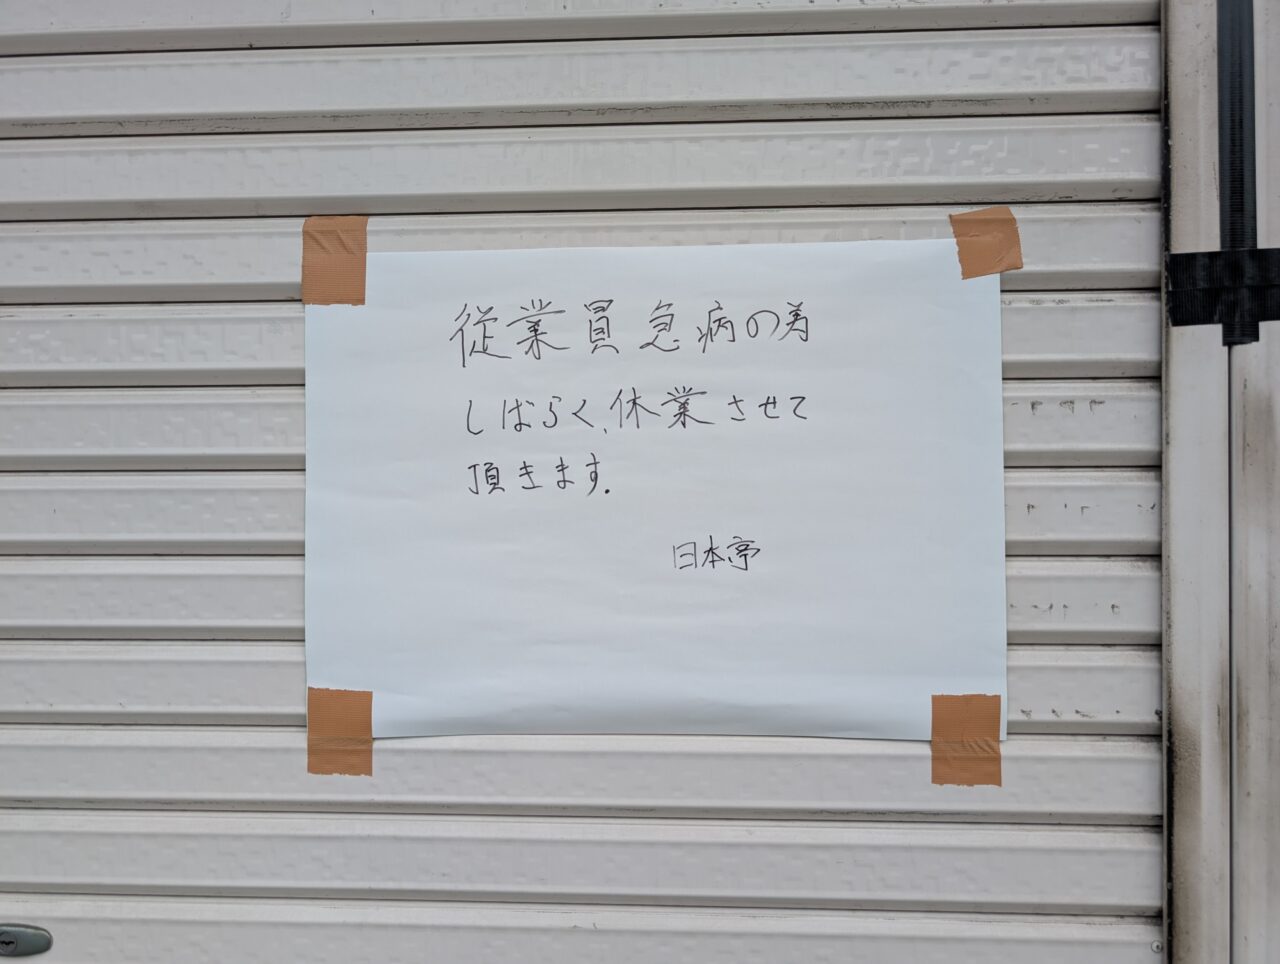 従業員急病の為
しばらく、休業させて
頂きます.
日本亭